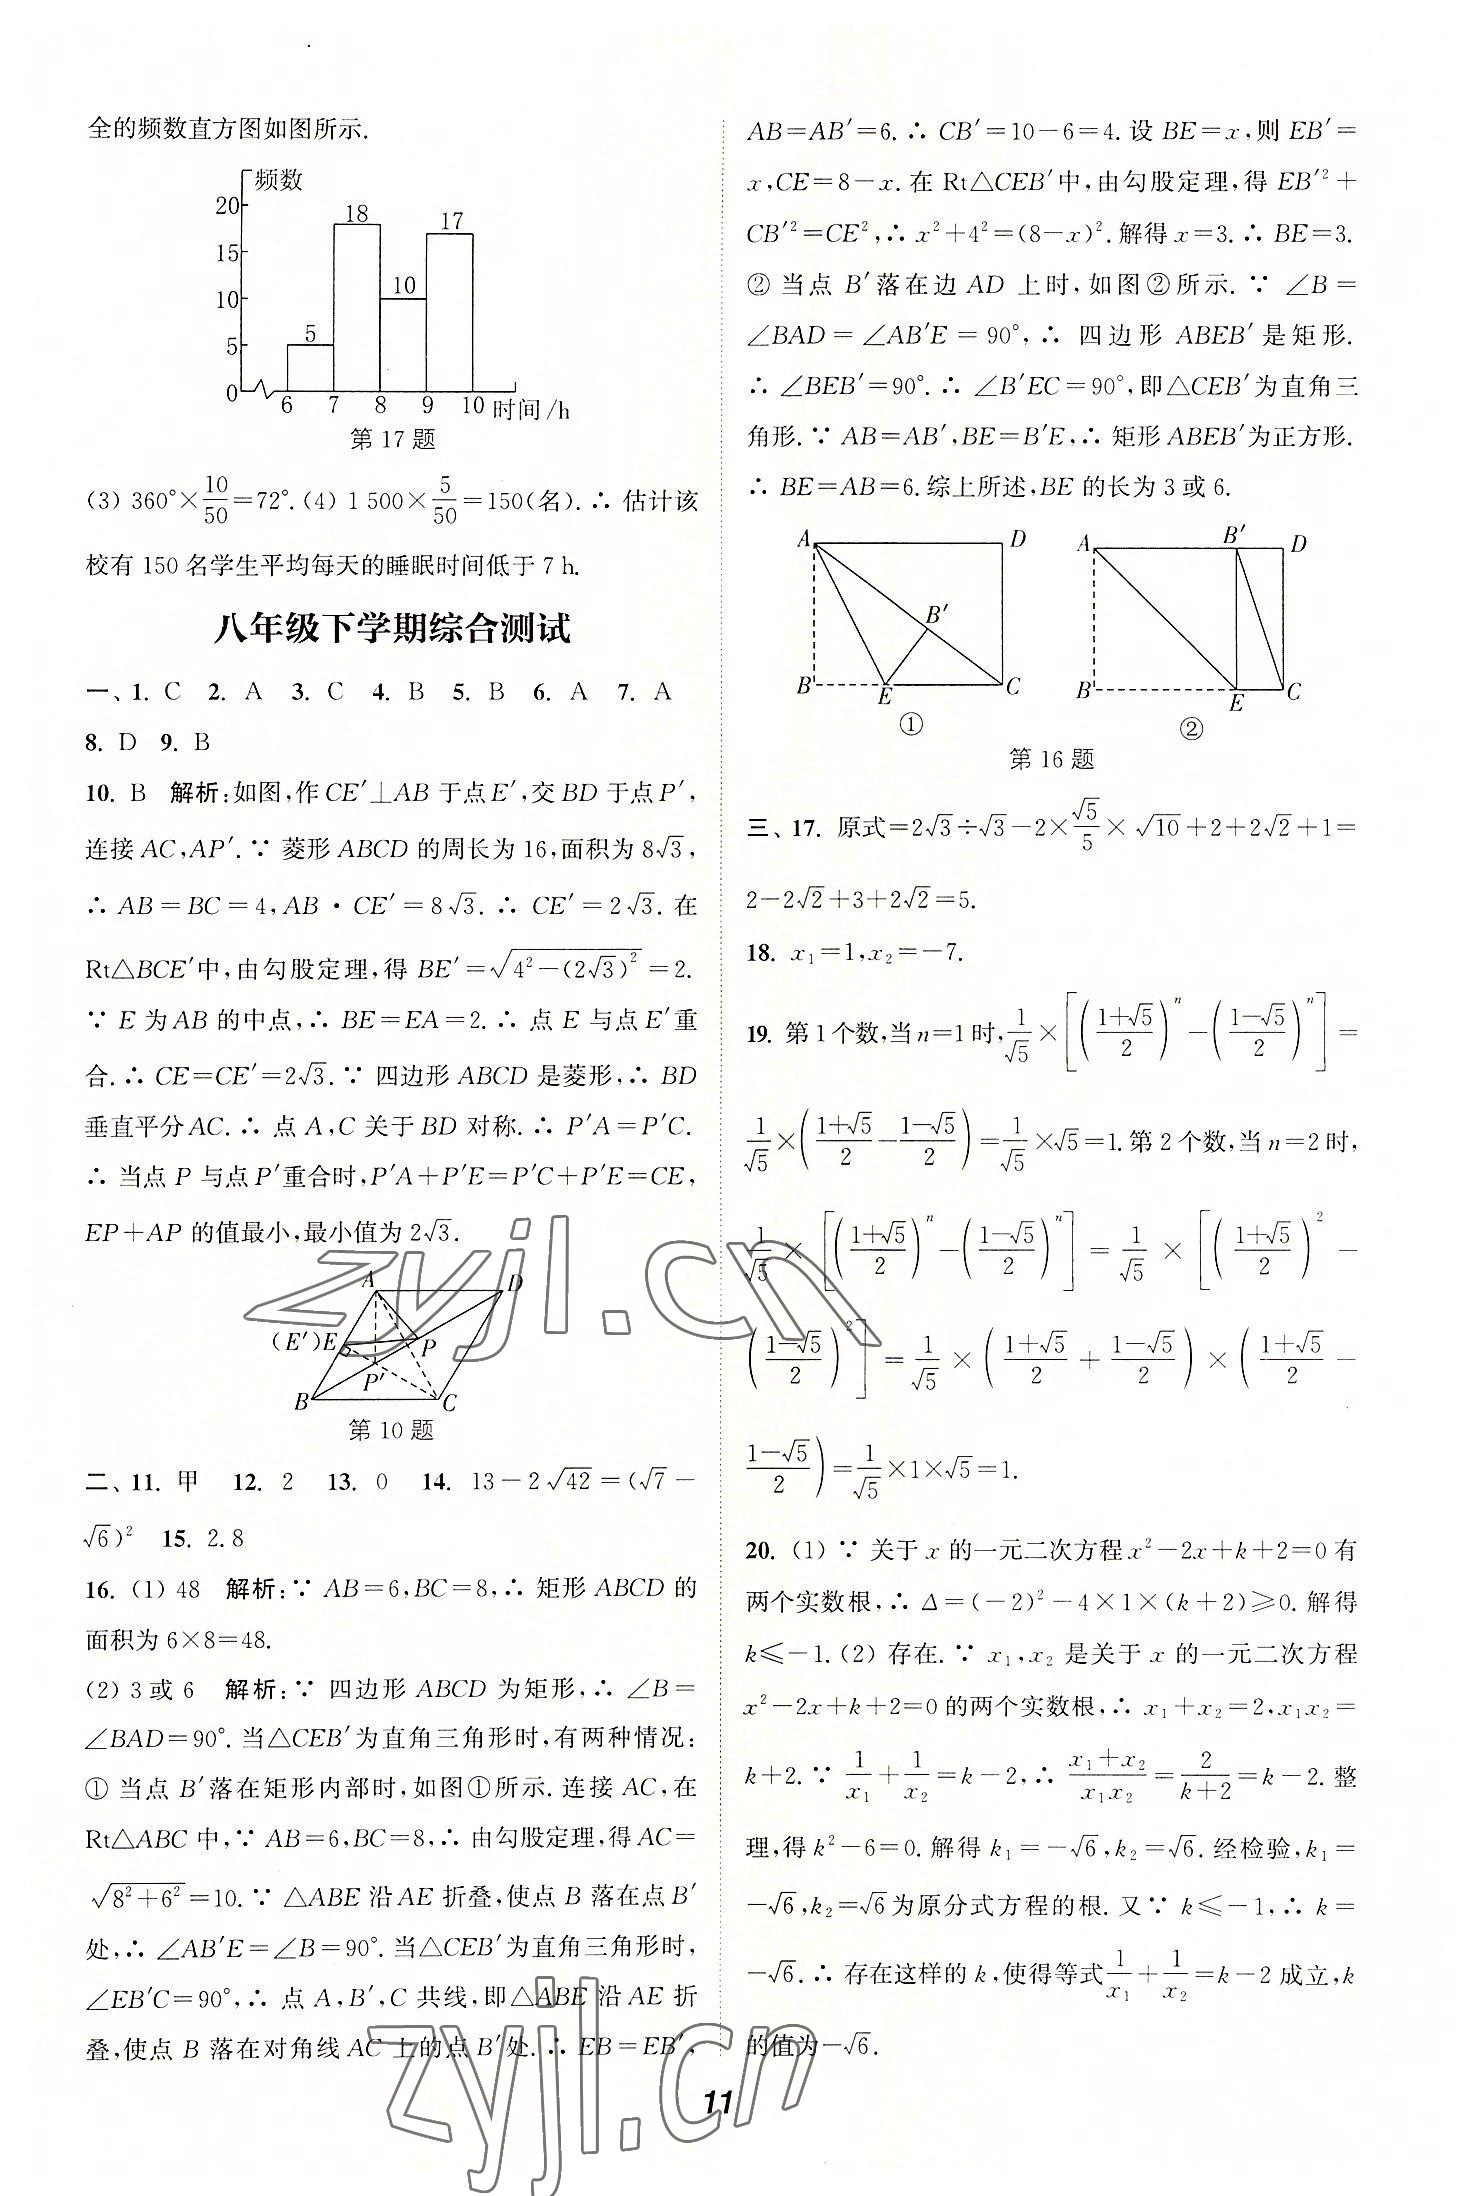 全的频数直方图如图所示.
频数
20
15
10
5
0
18
17
10
5
6 7 8 9 10 时间/h
第 17 题
(3) 360°×10/50=72°.(4) 1 500×5/50=150(名).∴ 估计该
校有 150 名学生平均每天的睡眠时间低于 7 h.
八年级下学期综合测试
一、1. C 2. A 3. C 4. B 5. B 6. A 7. A
8. D 9. B
10. B 解析:如图,作CE′⊥AB 于点E′,交BD 于点P′,
连接 AC,AP′.∵ 菱形 ABCD 的周长为 16,面积为 8√3,
∴ AB=BC=4,AB·CE′=8√3.∴ CE′=2√3.在
Rt△BCE′中,由勾股定理,得 BE′=√(4²-(2√3)²)=2.
∵ E 为AB 的中点,∴ BE=EA=2.∴ 点 E 与点E′重
合.∴ CE=CE′=2√3.∵ 四边形 ABCD 是菱形,∴ BD
垂直平分AC.∴ 点 A,C 关于BD 对称.∴ P′A=P′C.
∴ 当点 P 与点P′重合时,P′A+P′E=P′C+P′E=CE,
EP+AP 的值最小,最小值为 2√3.
A D
(E′)E P
P′
B C
第 10 题
二、11. 甲 12. 2 13. 0 14. 13-2√42=(√7-
√6)² 15. 2.8
16. (1) 48 解析:∵ AB=6,BC=8,∴ 矩形 ABCD 的
面积为 6×8=48.
(2) 3 或 6 解析:∵ 四边形 ABCD 为矩形,∴ ∠B=
∠BAD=90°.当△CEB′为直角三角形时,有两种情况:
① 当点 B′落在矩形内部时,如图①所示.连接 AC,在
Rt△ABC 中,∵ AB=6,BC=8,∴ 由勾股定理,得 AC=
√(8²+6²)=10.∵ △ABE 沿 AE 折叠,使点 B 落在点 B′
处,∴ ∠AB′E=∠B=90°.当△CEB′为直角三角形时,
∠EB′C=90°,∴ 点 A,B′,C 共线,即△ABE 沿 AE 折
叠,使点 B 落在对角线 AC 上的点 B′处.∴ EB=EB′,
AB=AB′=6.∴ CB′=10-6=4.设 BE=x,则 EB′=
x,CE=8-x.在 Rt△CEB′中,由勾股定理,得 EB′²+
CB′²=CE²,∴ x²+4²=(8-x)².解得 x=3.∴ BE=3.
② 当点 B′落在边 AD 上时,如图②所示.∵ ∠B=
∠BAD=∠AB′E=90°,∴ 四边形 ABEB′是矩形.
∴ ∠BEB′=90°.∴ ∠B′EC=90°,即△CEB′为直角三
角形.∵ AB=AB′,BE=B′E,∴ 矩形 ABEB′为正方形.
∴ BE=AB=6.综上所述,BE 的长为 3 或 6.
A D
B′
B E C
①
A B′ D
B E C
②
第 16 题
三、17. 原式=2√3÷√3-2×√5/5×√10+2+2√2+1=
2-2√2+3+2√2=5.
18. x₁=1,x₂=-7.
19. 第 1 个数,当 n=1 时,1/√5×[((1+√5)/2)ⁿ-((1-√5)/2)ⁿ]=
1/√5×((1+√5)/2-(1-√5)/2)=1/√5×√5=1.第 2 个数,当 n=2 时,
1/√5×[((1+√5)/2)ⁿ-((1-√5)/2)ⁿ]=1/√5×[((1+√5)/2)²-
((1-√5)/2)²]=1/√5×((1+√5)/2+(1-√5)/2)×((1+√5)/2-
(1-√5)/2)=1/√5×1×√5=1.
20. (1) ∵ 关于 x 的一元二次方程 x²-2x+k+2=0 有
两个实数根,∴ Δ=(-2)²-4×1×(k+2)≥0.解得
k≤-1.(2) 存在.∵ x₁,x₂ 是关于 x 的一元二次方程
x²-2x+k+2=0 的两个实数根,∴ x₁+x₂=2,x₁x₂=
k+2.∵ 1/x₁+1/x₂=k-2,∴ (x₁+x₂)/(x₁x₂)=2/(k+2)=k-2.整
理,得 k²-6=0.解得 k₁=-√6,k₂=√6.经检验,k₁=
-√6,k₂=√6为原分式方程的根.又∵ k≤-1,∴ k=
-√6.∴ 存在这样的 k,使得等式1/x₁+1/x₂=k-2 成立,k
的值为-√6.
11
zyjl.cn
zyjl.cn